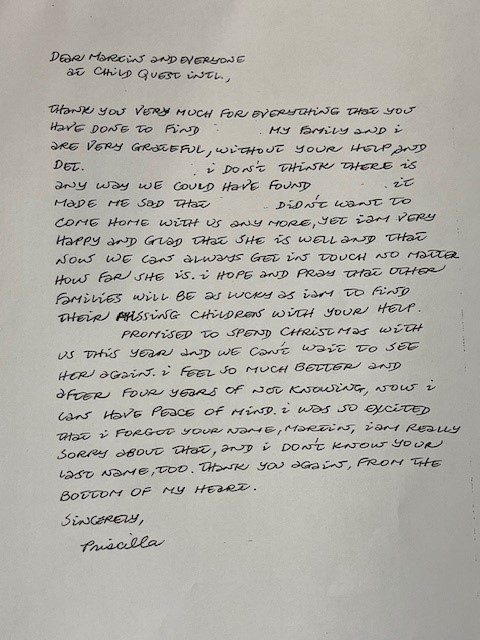 DEAR MARTIN AND EVERYONE
AT CHILD QUEST INTL,
THANK YOU VERY MUCH FOR EVERYTHING THAT YOU
HAVE DONE TO FIND MY FAMILY AND i
ARE VERY GRATEFUL, WITHOUT YOUR HELP AND
DET. i DON'T THINK THERE IS
ANY WAY WE COULD HAVE FOUND . iT
MADE ME SAD THAT DiDN'T WANT TO
COME HOME WITH US ANY MORE, YET i AM VERY
HAPPY AND GLAD THAT SHE IS WELL AND THAT
NOW WE CAN ALWAYS GET IN TOUCH NO MATTER
HOW FAR SHE IS. i HOPE AND PRAY THAT OTHER
FAMILIES WILL BE AS LUCKY AS i AM TO FIND
THEIR MISSING CHILDREN WITH YOUR HELP.
PROMISED TO SPEND CHRISTMAS WITH
US THIS YEAR AND WE CAN'T WAIT TO SEE
HER AGAIN. i FEEL SO MUCH BETTER AND
AFTER FOUR YEARS OF NOT KNOWING, NOW i
CAN HAVE PEACE OF MIND. i WAS SO EXCITED
THAT i FORGOT YOUR NAME, MARTIN, i AM REALLY
SORRY ABOUT THAT, AND i DON'T KNOW YOUR
LAST NAME, TOO. THANK YOU AGAIN, FROM THE
BOTTOM OF MY HEART.
SINCERELY,
Priscilla